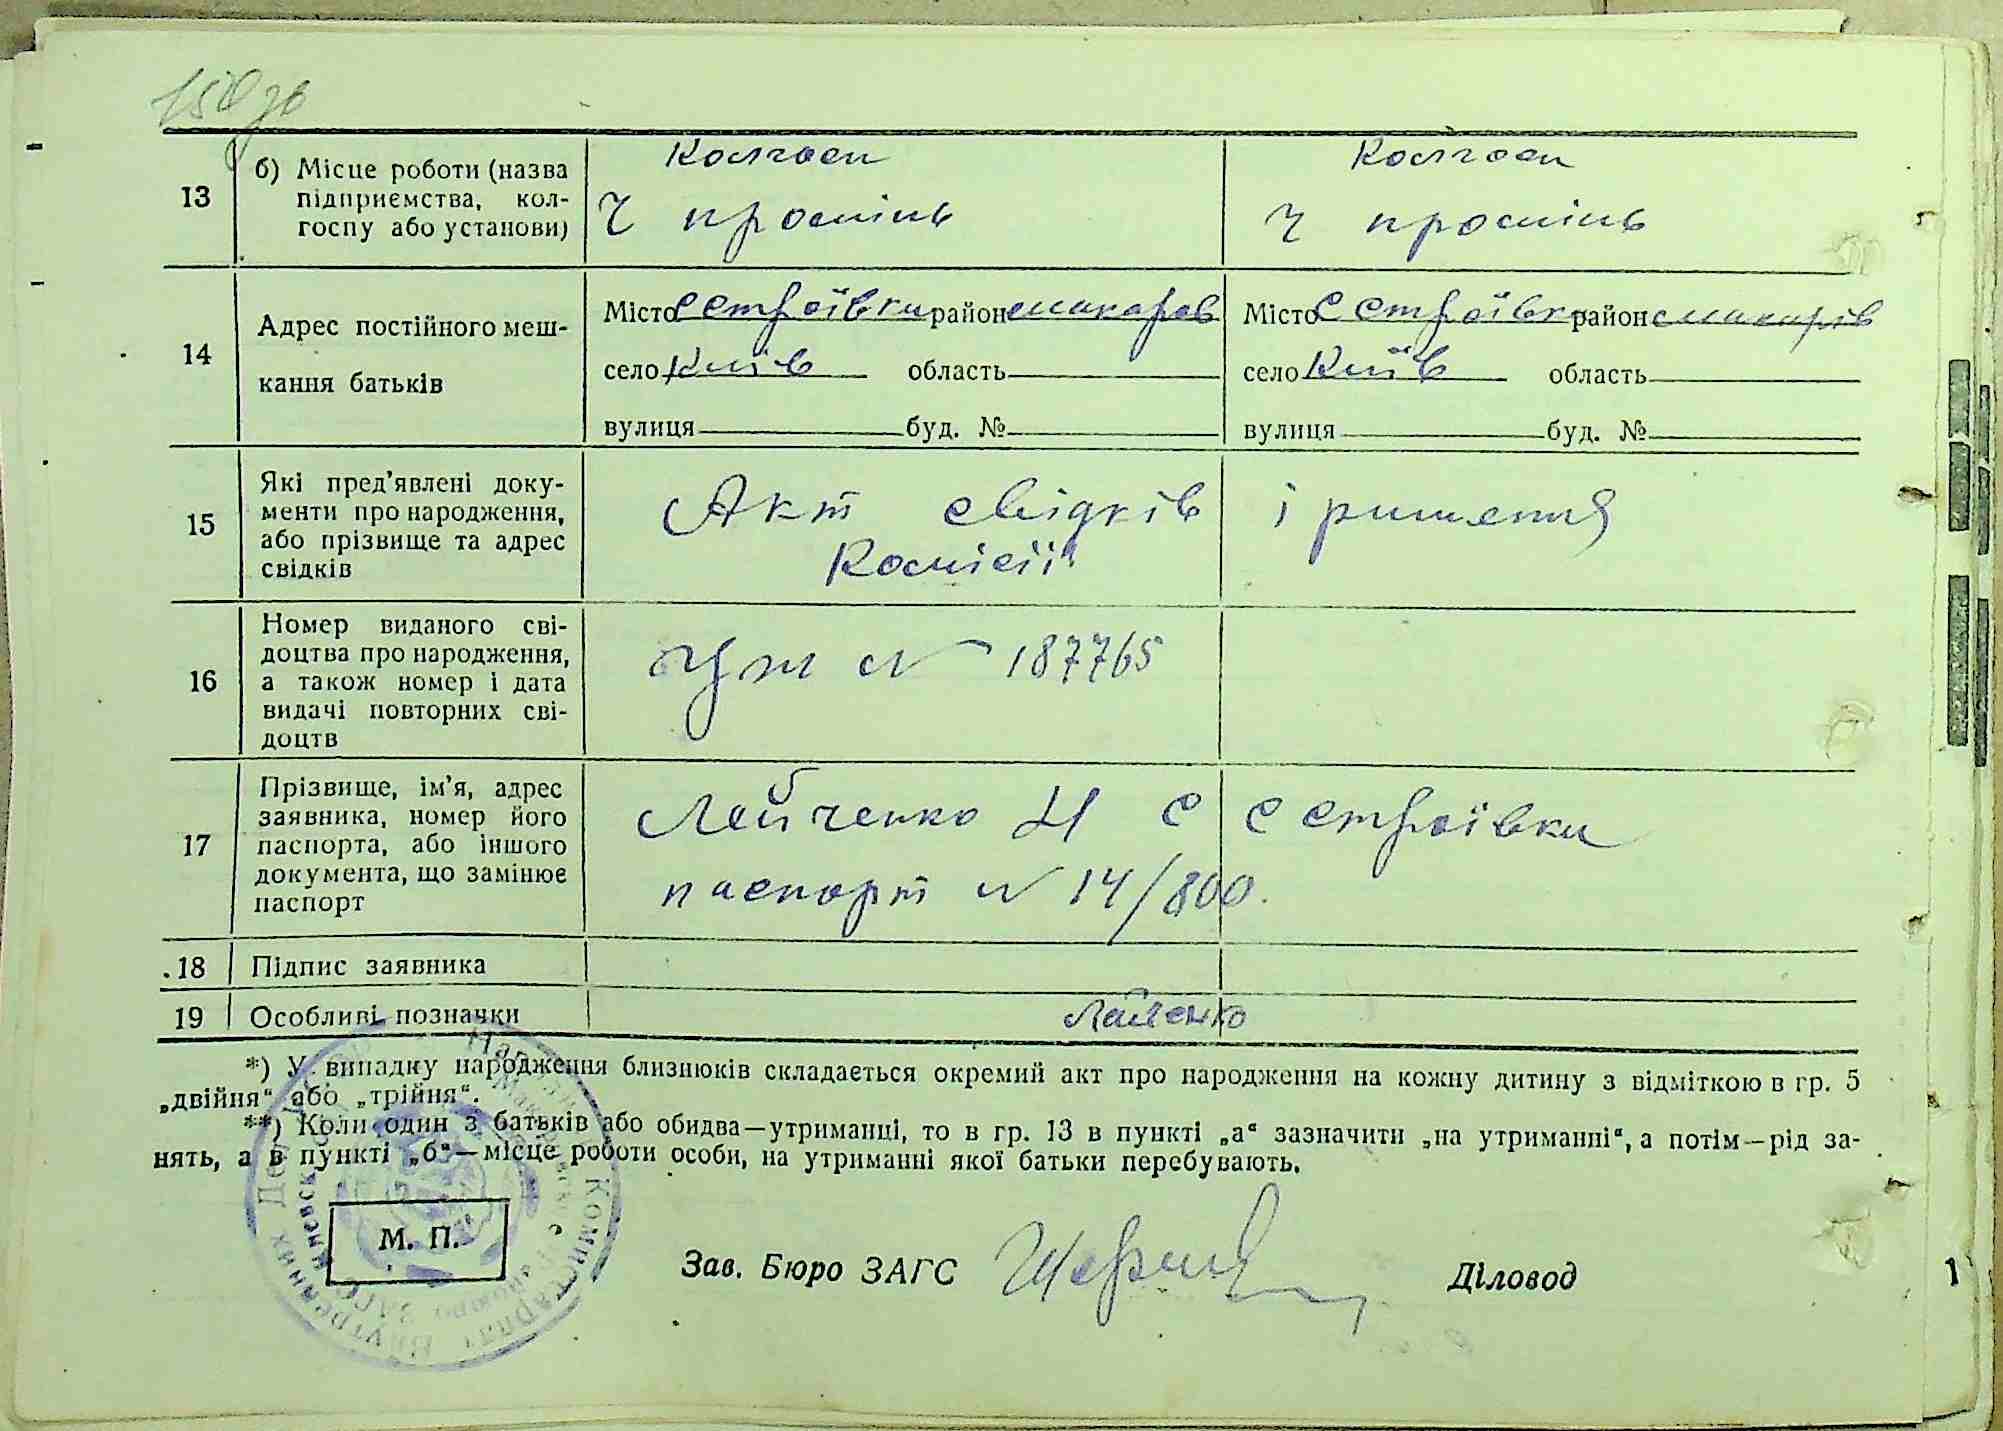 150 зв
13 б) Місце роботи (назва підприємства, колгоспу або установи)
Колгосп Колгосп
Ч промінь Ч промінь
14 Адрес постійного мешкання батьків
Місто с строївки район макаров Місто с строївки район макарів
село Київ область село Київ область
вулиця буд. № вулиця буд. №
15 Які пред'явлені документи про народження, або прізвище та адрес свідків
Акт свідків і ришення
Комісії
16 Номер виданого свідоцтва про народження, а також номер і дата видачі повторних свідоцтв
№ 187765
17 Прізвище, ім'я, адрес заявника, номер його паспорта, або іншого документа, що замінює паспорт
Лейченко с строївки
паспорт № 14/800.
18 Підпис заявника
19 Особливі позначки
*) У випадку народження близнюків складається окремий акт про народження на кожну дитину з відміткою в гр. 5
„двійня“ або „трійня“.
**) Коли один з батьків або обидва—утриманці, то в гр. 13 в пункті „а“ зазначити „на утриманні“, а потім—рід за-
нять, а в пункті „б“—місце роботи особи, на утриманні якої батьки перебувають.
М. П.
Зав. Бюро ЗАГС Діловод
1